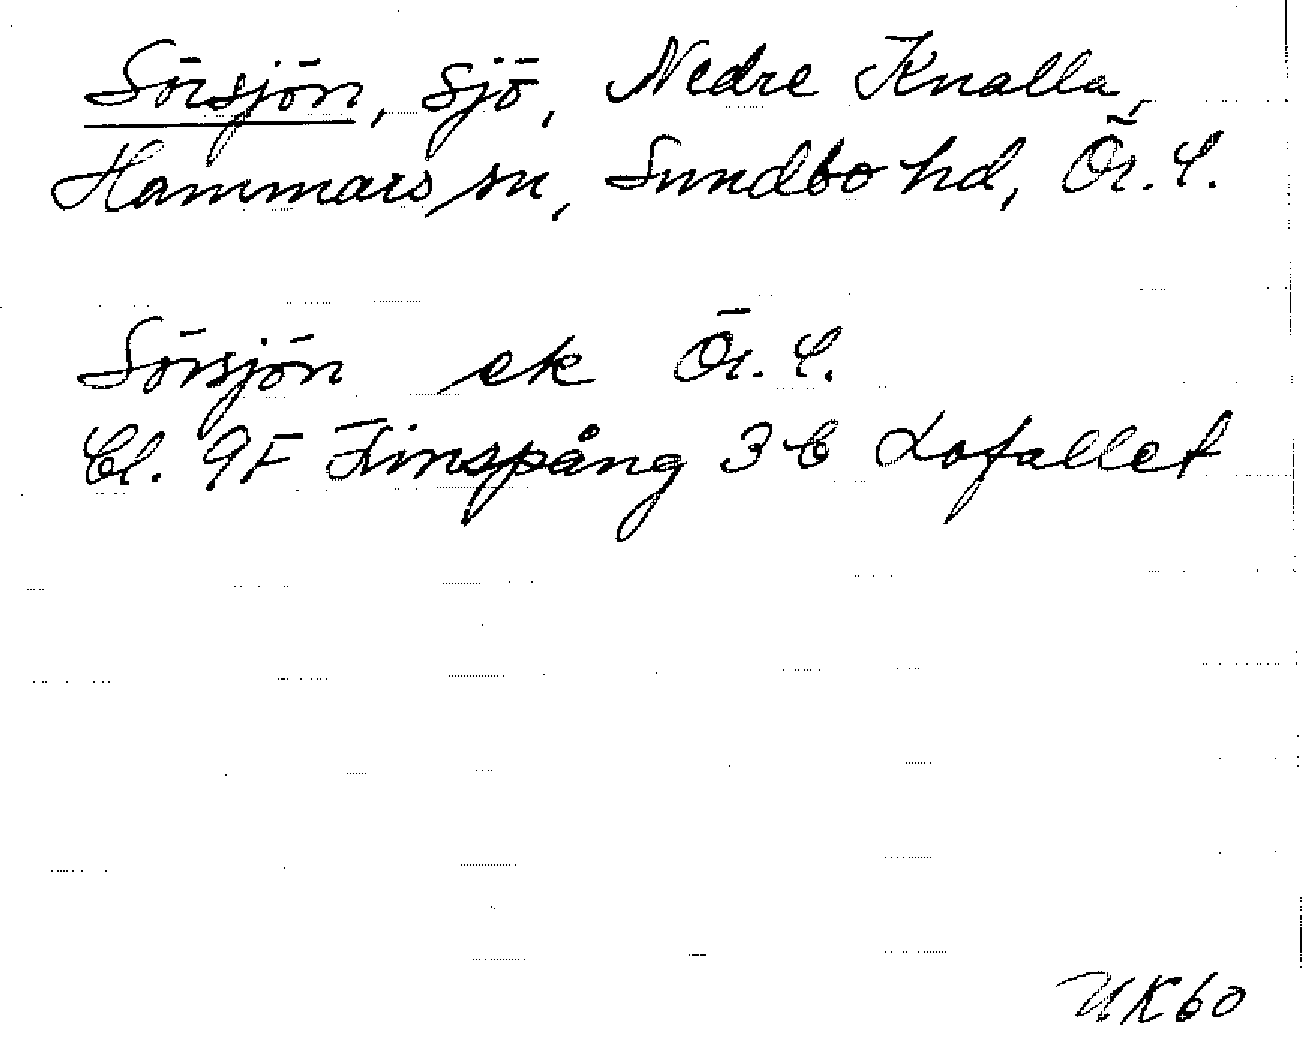 Sörsjön, sjö, Nedre Knalla,
Hammars sn, Sundbo hd, Ör. l.
Sörsjön ek Ör. l.
Bl. 9F Finspång 3 C Lofallet
UK60